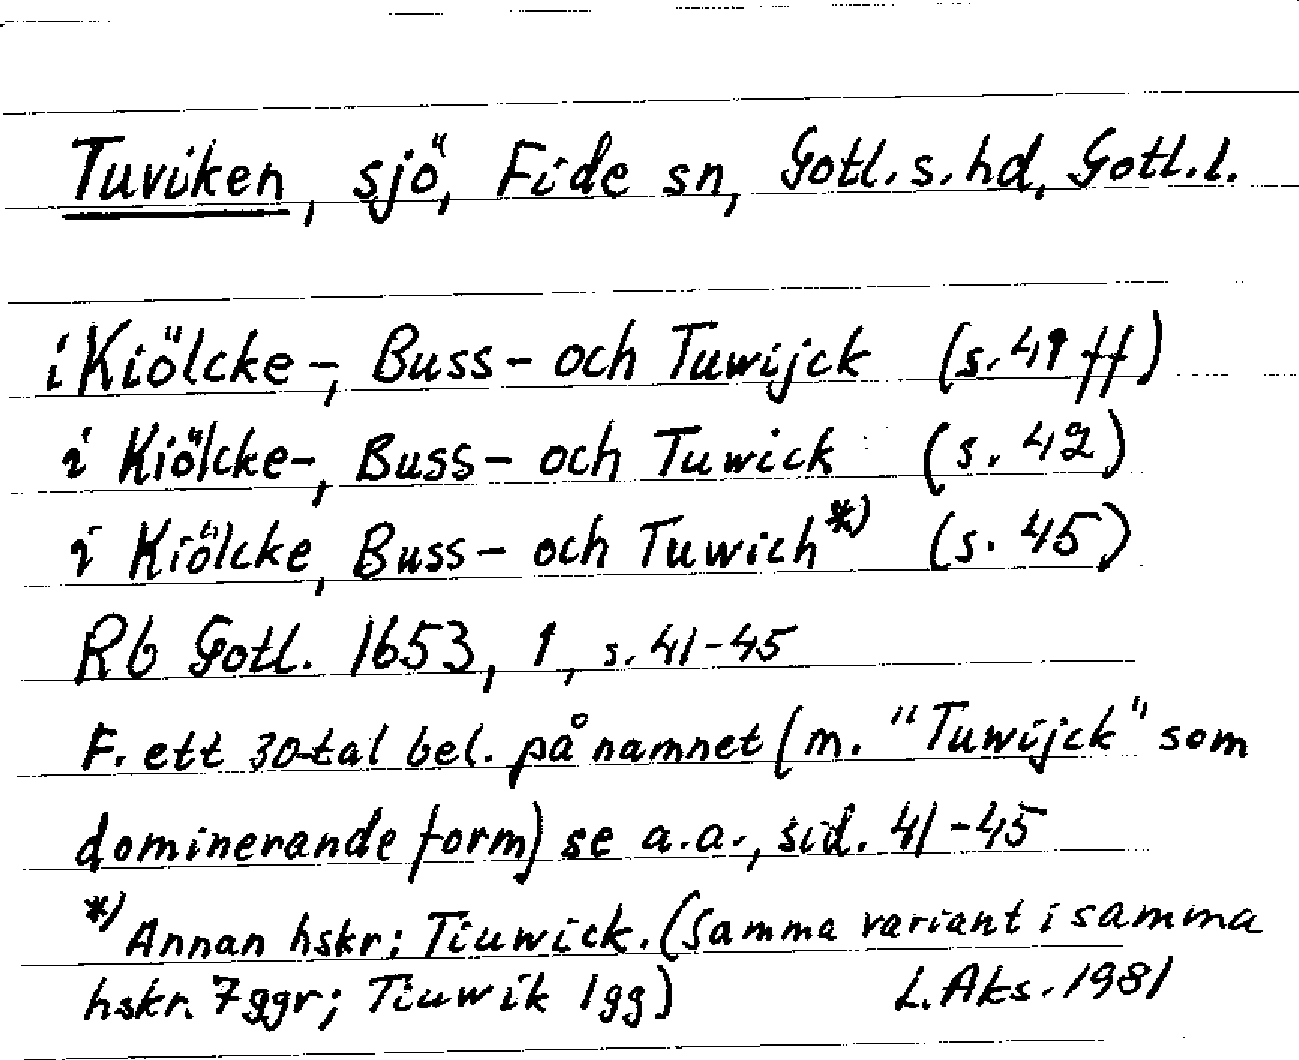 Tuviken, sjö, Fide sn, Gotl. s. hd, Gotl. l.
i Kiölcke-, Buss- och Tuwijck (s. 41 ff)
i Kiölcke-, Buss- och Tuwick (s. 42)
i Kiölcke, Buss- och Tuwich*) (s. 45)
Rb Gotl. 1653, 1, s. 41-45
F. ett 30-tal bel. på namnet (m. "Tuwijck" som
dominerande form) se a.a., sid. 41-45
*) Annan hskr: Tiuwick. (Samma variant i samma
hskr. 7 ggr; Tiuwik 1 gg)
L. Aks. 1981